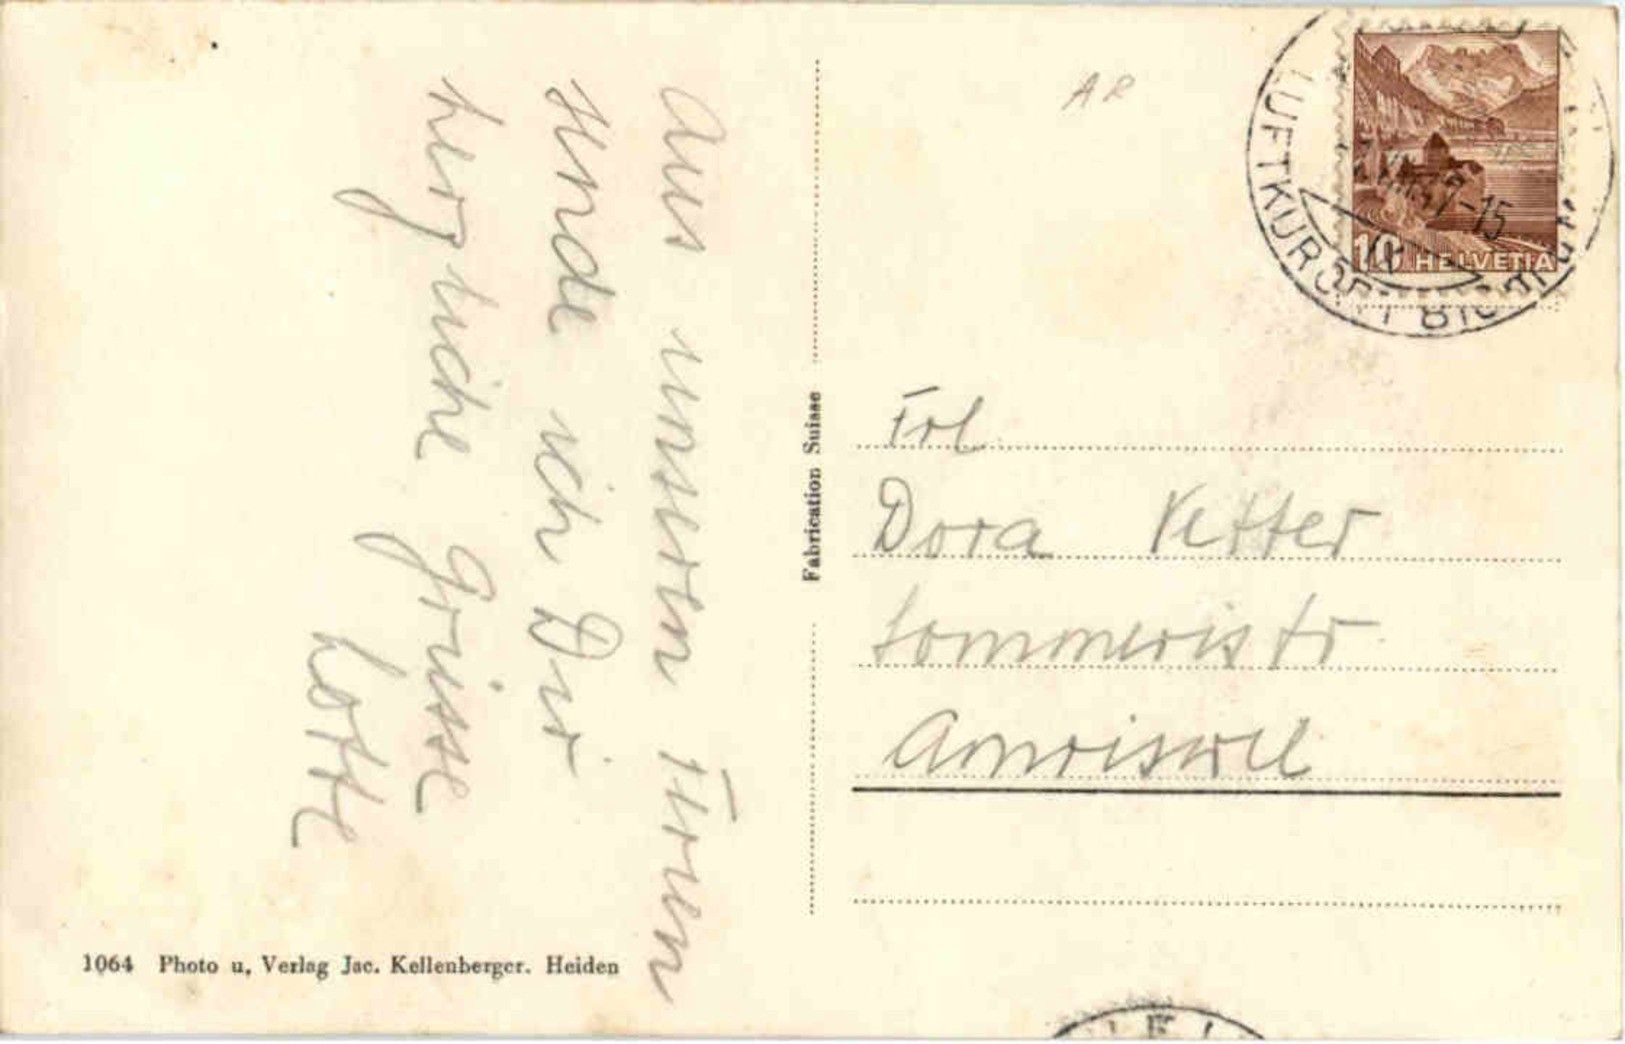 Aus unseren Ferien
sende ich Dir
herzliche Grüsse
Lotte
1064 Photo u. Verlag Jac. Kellenberger. Heiden
Fabrication Suisse
AR
LUFTKURORT
VIII.47-15
10 HELVETIA
Frl
Dora Vetter
Sommeristr
Amriswil